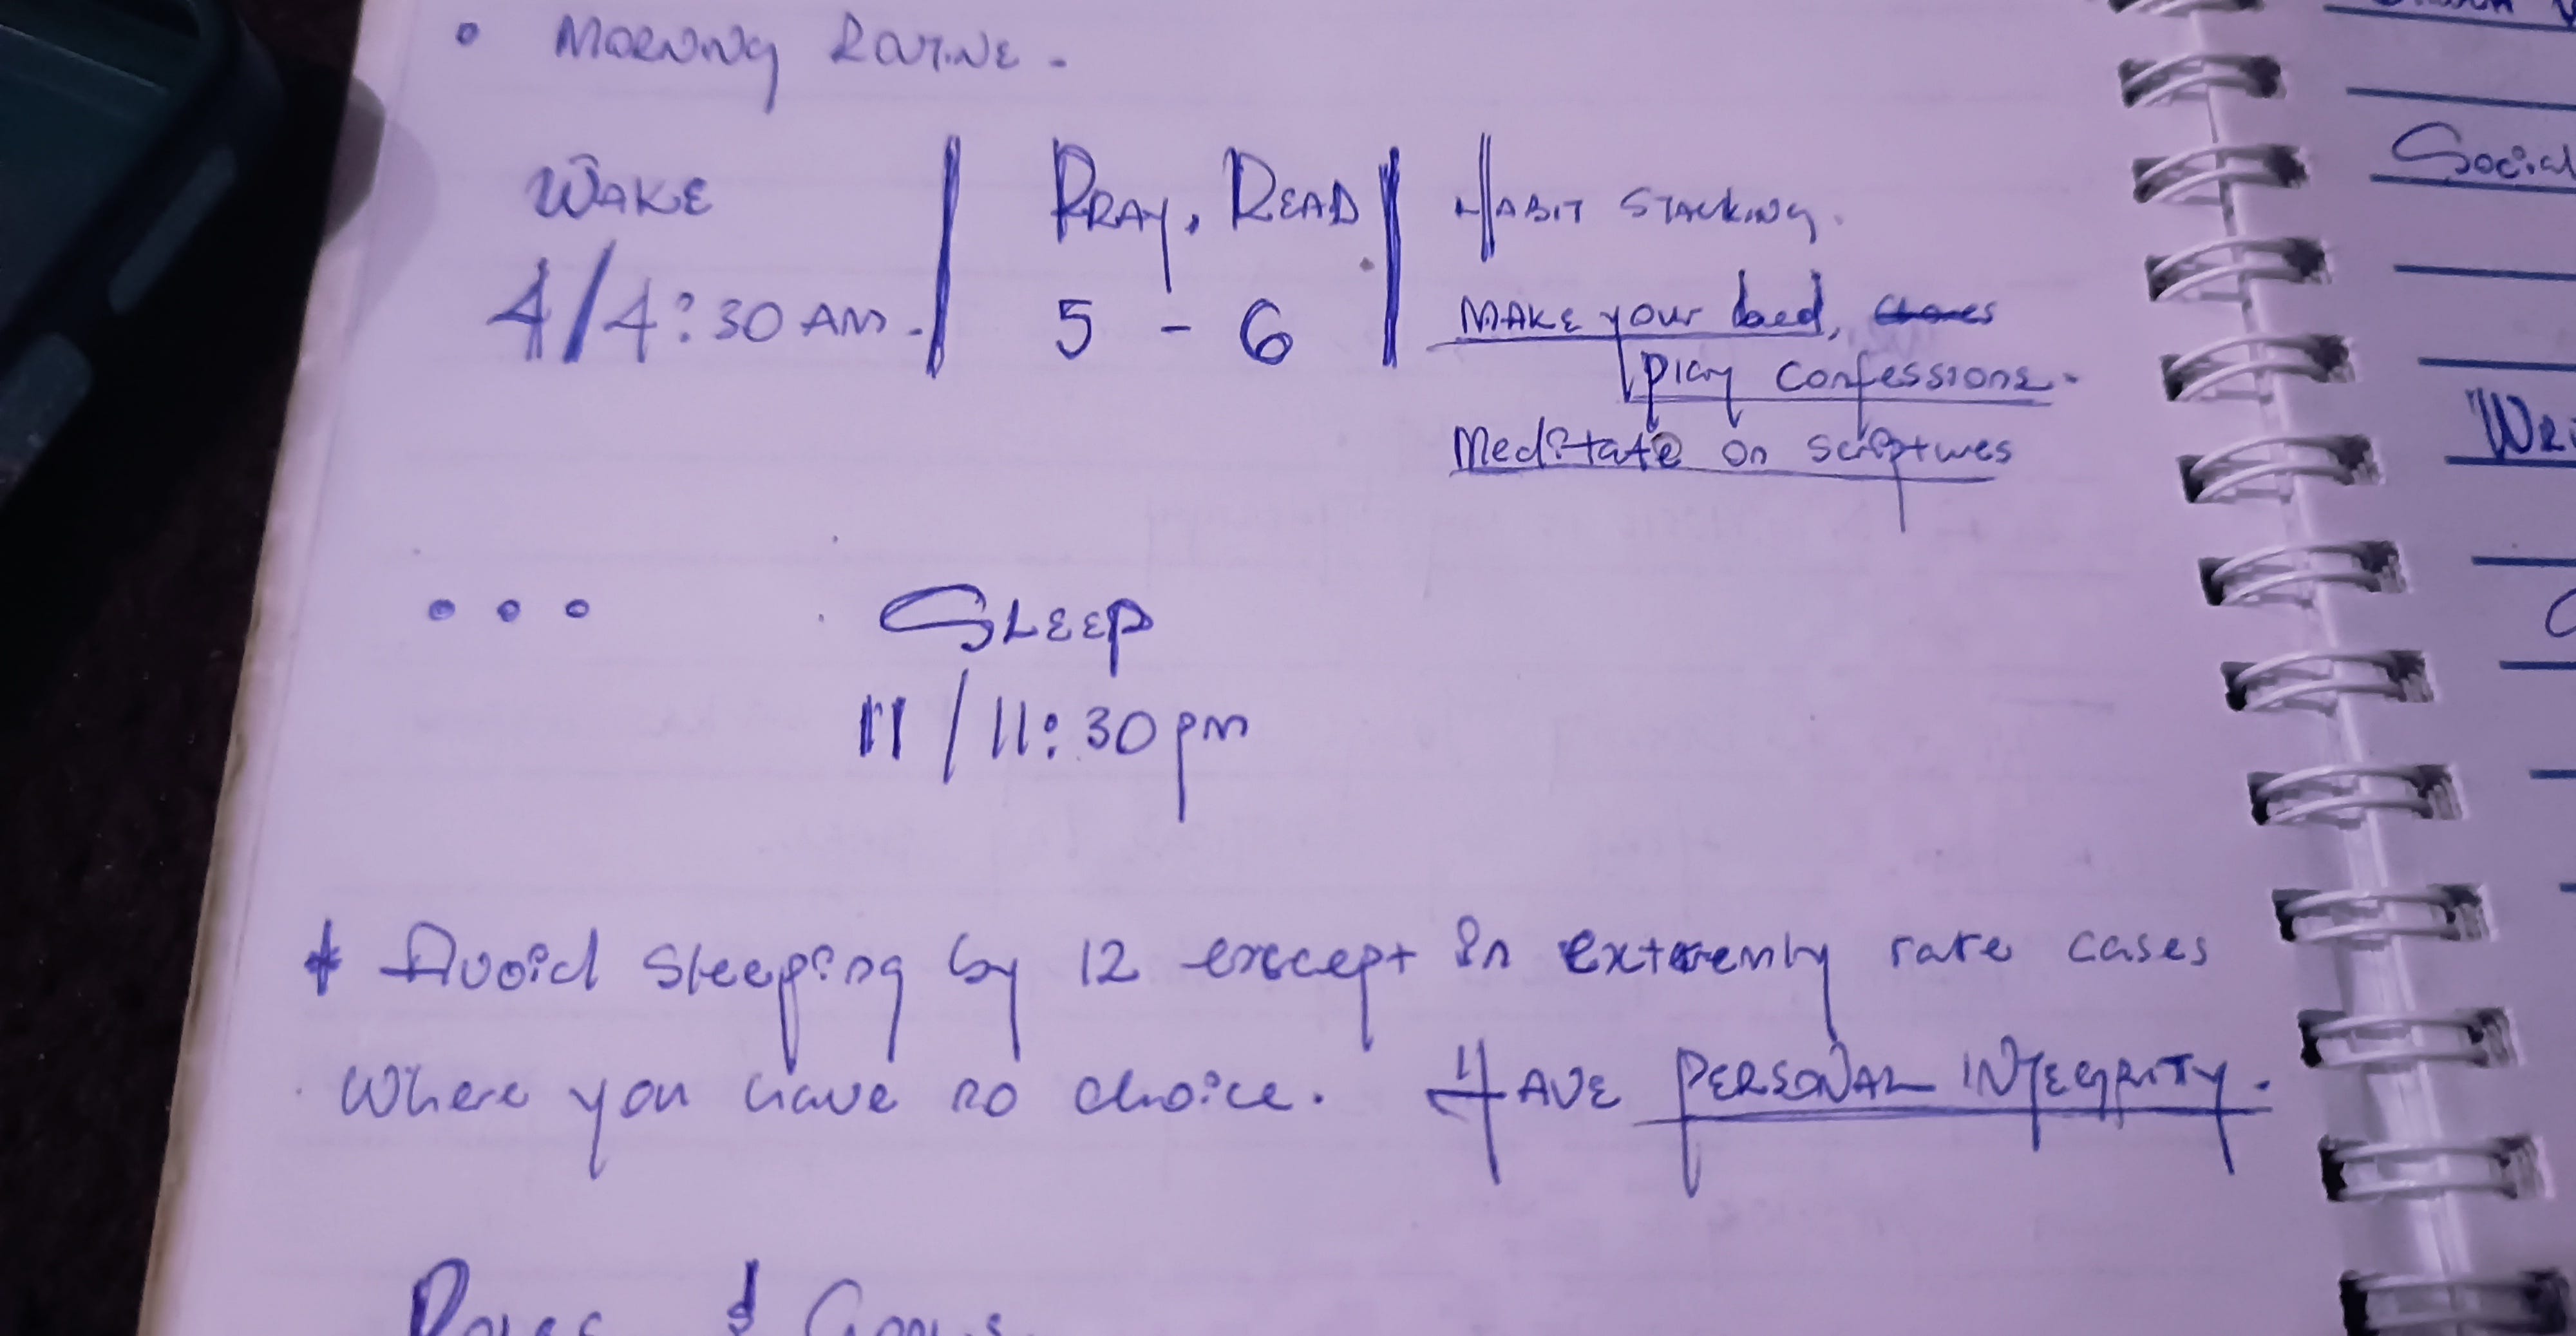 • MORNINg ROUTINE.
WAKE | PRAY, READ | HABIT STACKING.
4/4:30 AM. | 5 - 6 | MAKE your bed,
play confessions.
Meditate on scriptures
• • • SLEEP
11 / 11:30pm
* Avoid sleeping by 12 except in extremly rare cases
Where you have no choice. HAVE PERSONAL INTEGRITY.
& Goals
Social